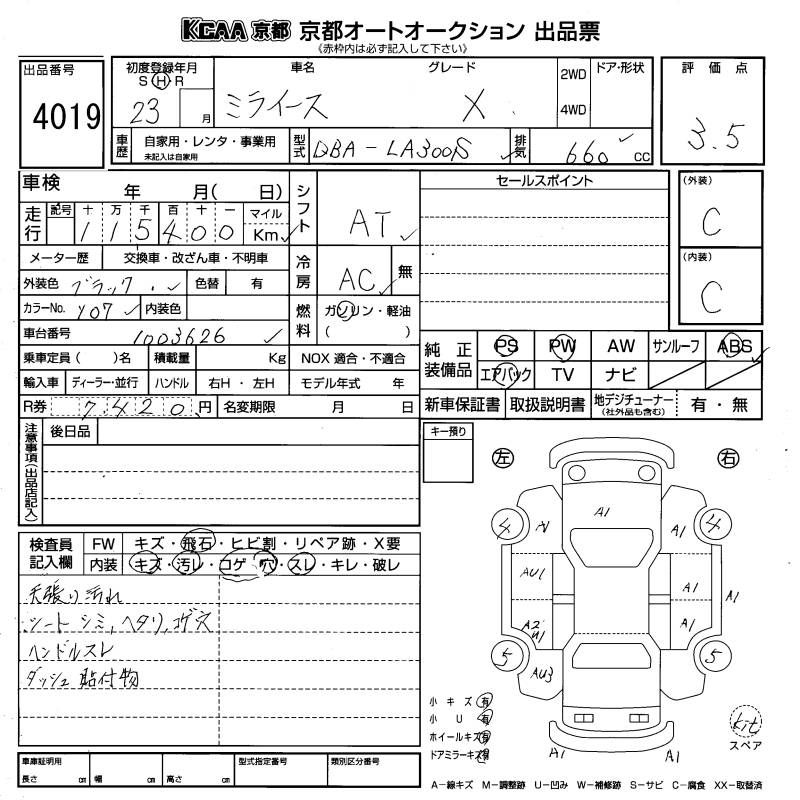 KCAA 京都 京都オートオークション 出品票
《赤枠内は必ず記入して下さい》
出品番号
4019
初度登録年月
S H R
23 月
車名
ミライース
グレード
X
2WD
4WD
ドア・形状
評価点
3.5
車歴
自家用・レンタ・事業用
未記入は自家用
型式
DBA-LA300S
排気
660 cc
車検 年 月( 日)
走行
記号 十 万 千 百 十 一
115400
マイル
Km
シフト
AT
メーター歴 交換車・改ざん車・不明車
外装色 ブラック 色替 有
カラーNo. X07 内装色
冷房
AC 無
燃料
ガソリン・軽油
( )
車台番号 1003626
乗車定員( )名 積載量 Kg NOX 適合・不適合
輸入車 ディーラー・並行 ハンドル 右H・左H モデル年式 年
R券 7,420 円 名変期限 月 日
セールスポイント
(外装)
C
(内装)
C
純正装備品
PS PW AW サンルーフ ABS
エアバック TV ナビ
新車保証書 取扱説明書 地デジチューナー
(社外品も含む)
有・無
注意事項(出品店記入)
後日品
キー預り
左 右
検査員記入欄
FW キズ・飛石・ヒビ割・リペア跡・X要
内装 キズ・汚レ・コゲ・穴・スレ・キレ・破レ
天張り汚れ
シート シミ,ヘタリ,コゲ穴
ハンドルスレ
ダッシュ貼付物
4 A1 A1 4
AU1 A1 A1
A2 A1
5 AU3 5
A1 A1
小キズ 有
小U 有
ホイールキズ 有
ドアミラーキズ 有
kit
スペア
車庫証明用
長さ cm 幅 cm 高さ cm
型式指定番号
類別区分番号
A-線キズ M-調整跡 U-凹み W-補修跡 S-サビ C-腐食 XX-取替済